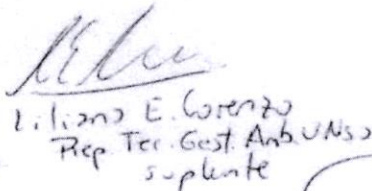 Liliana E. Lorenzo
Rep. Tec. Gest. Amb. UNSa
suplente